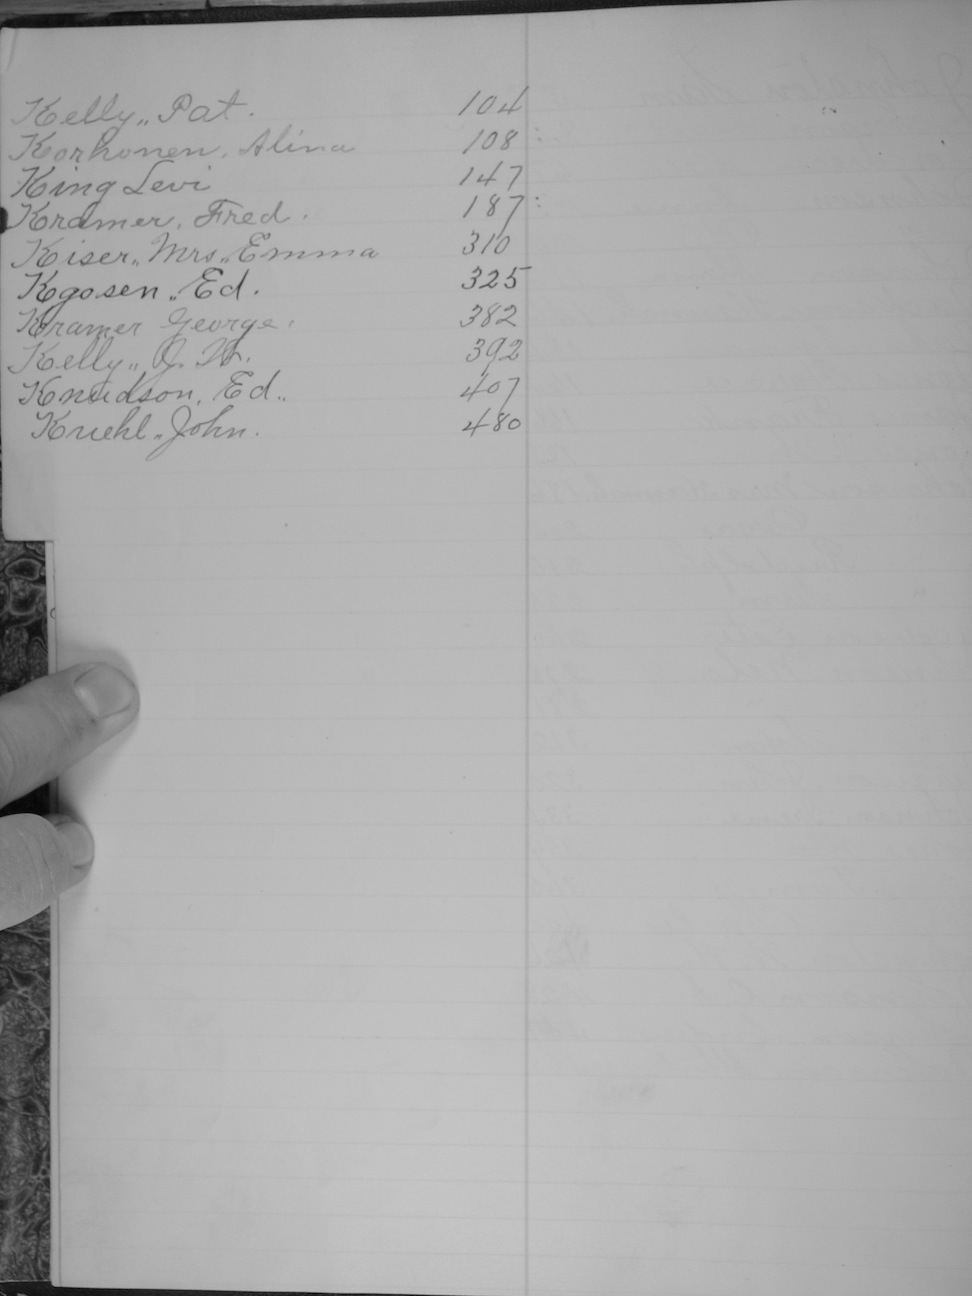 Kelly,, Pat. 104
Korhonen, Alina 108
King Levi 147
Kramer, Fred. 187
Kiser,, Mrs,, Emma 310
Kgosen,, Ed. 325
Kramer George. 382
Kelly,, J. W. 392
Knudson, Ed.. 407
Kruehl,, John. 480